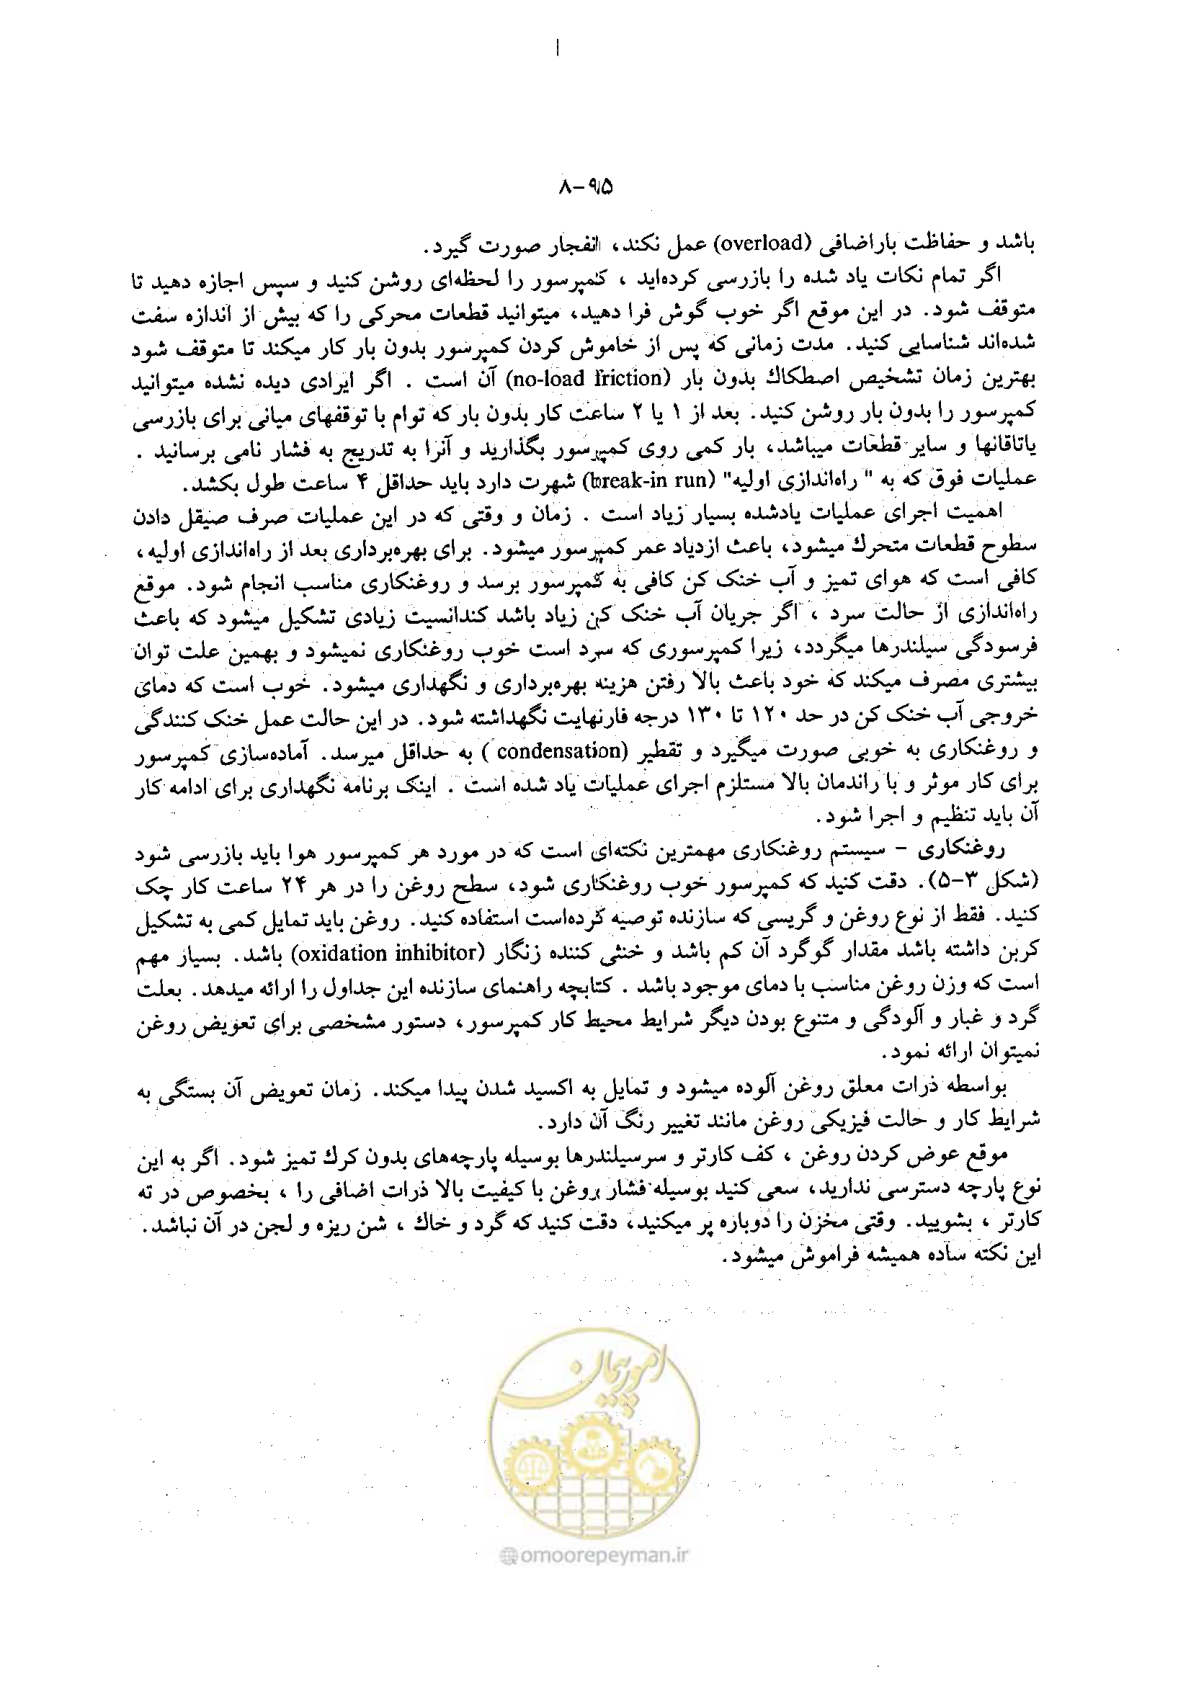 ۸-۹/۵
باشد و حفاظت باراضافی (overload) عمل نکند، انفجار صورت گیرد.
اگر تمام نکات یاد شده را بازرسی کرده‌اید ، کمپرسور را لحظه‌ای روشن کنید و سپس اجازه دهید تا
متوقف شود. در این موقع اگر خوب گوش فرا دهید، میتوانید قطعات محرکی را که بیش از اندازه سفت
شده‌اند شناسایی کنید. مدت زمانی که پس از خاموش کردن کمپرسور بدون بار کار میکند تا متوقف شود
بهترین زمان تشخیص اصطکاك بدون بار (no-load friction) آن است . اگر ایرادی دیده نشده میتوانید
کمپرسور را بدون بار روشن کنید. بعد از ۱ یا ۲ ساعت کار بدون بار که توام با توقفهای میانی برای بازرسی
یاتاقانها و سایر قطعات میباشد، بار کمی روی کمپرسور بگذارید و آنرا به تدریج به فشار نامی برسانید .
عملیات فوق که به " راه‌اندازی اولیه" (break-in run) شهرت دارد باید حداقل ۴ ساعت طول بکشد.
اهمیت اجرای عملیات یادشده بسیار زیاد است . زمان و وقتی که در این عملیات صرف صیقل دادن
سطوح قطعات متحرك میشود، باعث ازدیاد عمر کمپرسور میشود. برای بهره‌برداری بعد از راه‌اندازی اولیه،
کافی است که هوای تمیز و آب خنک کن کافی به کمپرسور برسد و روغنکاری مناسب انجام شود. موقع
راه‌اندازی از حالت سرد ، اگر جریان آب خنک کن زیاد باشد کندانسیت زیادی تشکیل میشود که باعث
فرسودگی سیلندرها میگردد، زیرا کمپرسوری که سرد است خوب روغنکاری نمیشود و بهمین علت توان
بیشتری مصرف میکند که خود باعث بالا رفتن هزینه بهره‌برداری و نگهداری میشود. خوب است که دمای
خروجی آب خنک کن در حد ۱۲۰ تا ۱۳۰ درجه فارنهایت نگهداشته شود. در این حالت عمل خنک کنندگی
و روغنکاری به خوبی صورت میگیرد و تقطیر (condensation ) به حداقل میرسد. آماده‌سازی کمپرسور
برای کار موثر و با راندمان بالا مستلزم اجرای عملیات یاد شده است . اینک برنامه نگهداری برای ادامه کار
آن باید تنظیم و اجرا شود.
روغنکاری - سیستم روغنکاری مهمترین نکته‌ای است که در مورد هر کمپرسور هوا باید بازرسی شود
(شکل ۳-۵). دقت کنید که کمپرسور خوب روغنکاری شود، سطح روغن را در هر ۲۴ ساعت کار چک
کنید. فقط از نوع روغن و گریسی که سازنده توصیه کرده‌است استفاده کنید. روغن باید تمایل کمی به تشکیل
کربن داشته باشد مقدار گوگرد آن کم باشد و خنثی کننده زنگار (oxidation inhibitor) باشد. بسیار مهم
است که وزن روغن مناسب با دمای موجود باشد . کتابچه راهنمای سازنده این جداول را ارائه میدهد. بعلت
گرد و غبار و آلودگی و متنوع بودن دیگر شرایط محیط کار کمپرسور، دستور مشخصی برای تعویض روغن
نمیتوان ارائه نمود.
بواسطه ذرات معلق روغن آلوده میشود و تمایل به اکسید شدن پیدا میکند. زمان تعویض آن بستگی به
شرایط کار و حالت فیزیکی روغن مانند تغییر رنگ آن دارد.
موقع عوض کردن روغن ، کف کارتر و سرسیلندرها بوسیله پارچه‌های بدون کرك تمیز شود. اگر به این
نوع پارچه دسترسی ندارید، سعی کنید بوسیله فشار روغن با کیفیت بالا ذرات اضافی را ، بخصوص در ته
کارتر ، بشویید. وقتی مخزن را دوباره پر میکنید، دقت کنید که گرد و خاك ، شن ریزه و لجن در آن نباشد.
این نکته ساده همیشه فراموش میشود.
امور پیمان
@omoorepeyman.ir